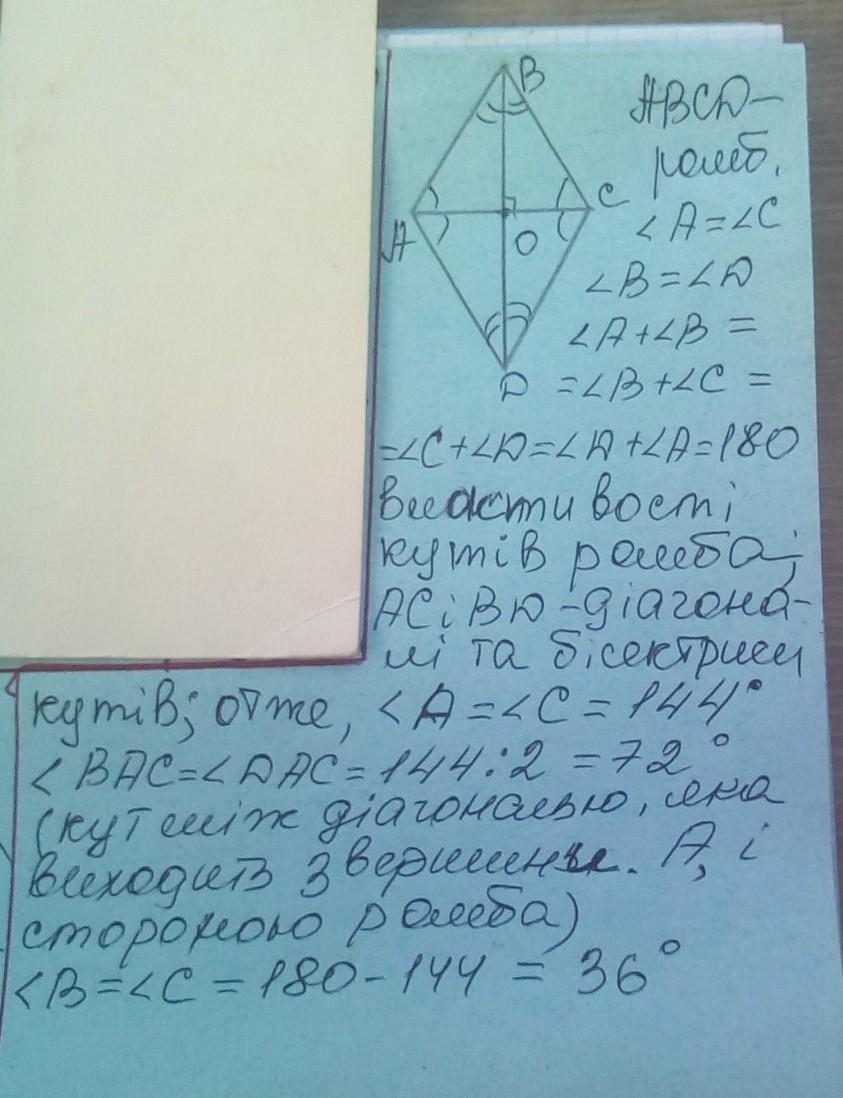 B
ABCD-
ромб.
C
A
O
D
∠A=∠C
∠B=∠D
∠A+∠B =
=∠B+∠C =
=∠C+∠D=∠D+∠A=180
властивості
кутів ромба;
AC і BD-діагона-
лі та бісектриси
кутів; отже, ∠A=∠C=144°
∠BAC=∠DAC=144:2=72°
(кут між діагоналлю, яка
виходить з вершини. A, і
стороною ромба)
∠B=∠C=180-144=36°